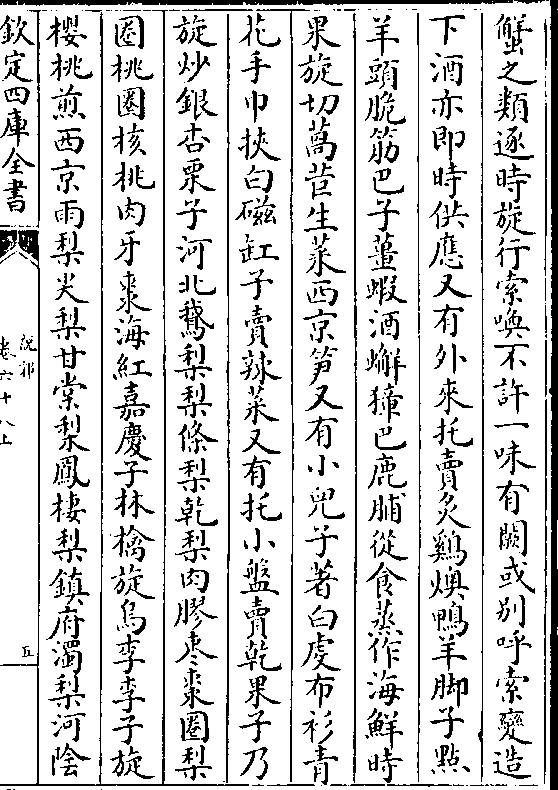 蟹之類逐時旋行索喚不許一味有闕或别呼索變造
下酒亦即時供應又有外來托賣炙鷄燠鴨羊脚子點
羊頭脆筋巴子薑蝦酒蠏獐巴鹿脯從食蒸作海鮮時
果旋切萵苣生菜西京笋又有小兒子著白虔布衫青
花手巾挾白磁缸子賣辣菜又有托小盤賣乾果子乃
旋炒銀杏栗子河北鵞梨梨條梨乾梨肉膠棗棗圈梨
圈桃圈核桃肉牙棗海紅嘉慶子林檎旋烏李李子旋
櫻桃煎西京雨梨尖梨甘棠梨鳳棲梨鎮府濁梨河陰
欽定四庫全書
說郛
卷六十八上
五